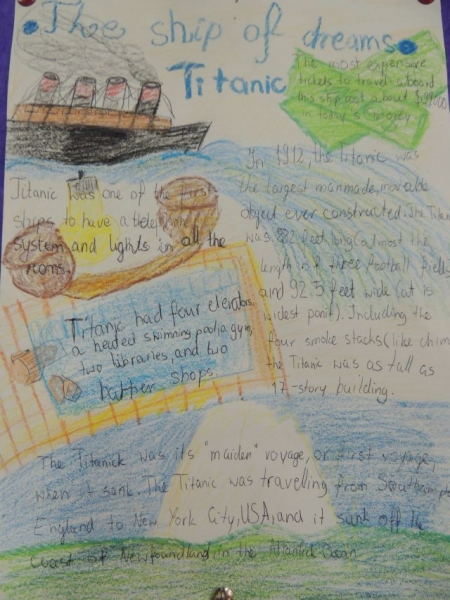 The ship of dreams
Titanic
The most expensive
tickets to travel aboard
this ship cost about $99,000
in today's money
In 1912, the titanic was
the largest manmade movable
object ever constructed. The Titanic
was 882 feet long (almost the
length of three football fields)
and 92.5 feet wide (at is
widest point). Including the
four smoke stacks (like chim
the Titanic was as tall as
17-story building.
Titanic was one of the first
ships to have a telephone
system and lights in all the
rooms.
Titanic had four elevators
a heated swimming pool, a gym,
two libraries, and two
barber shops.
The Titanick was its "maiden" voyage, or first voyage,
when it sank. The Titanic was travelling from Southampton
England to New York City, USA, and it sank off the
coast of Newfoundland in the Atlantic Ocean